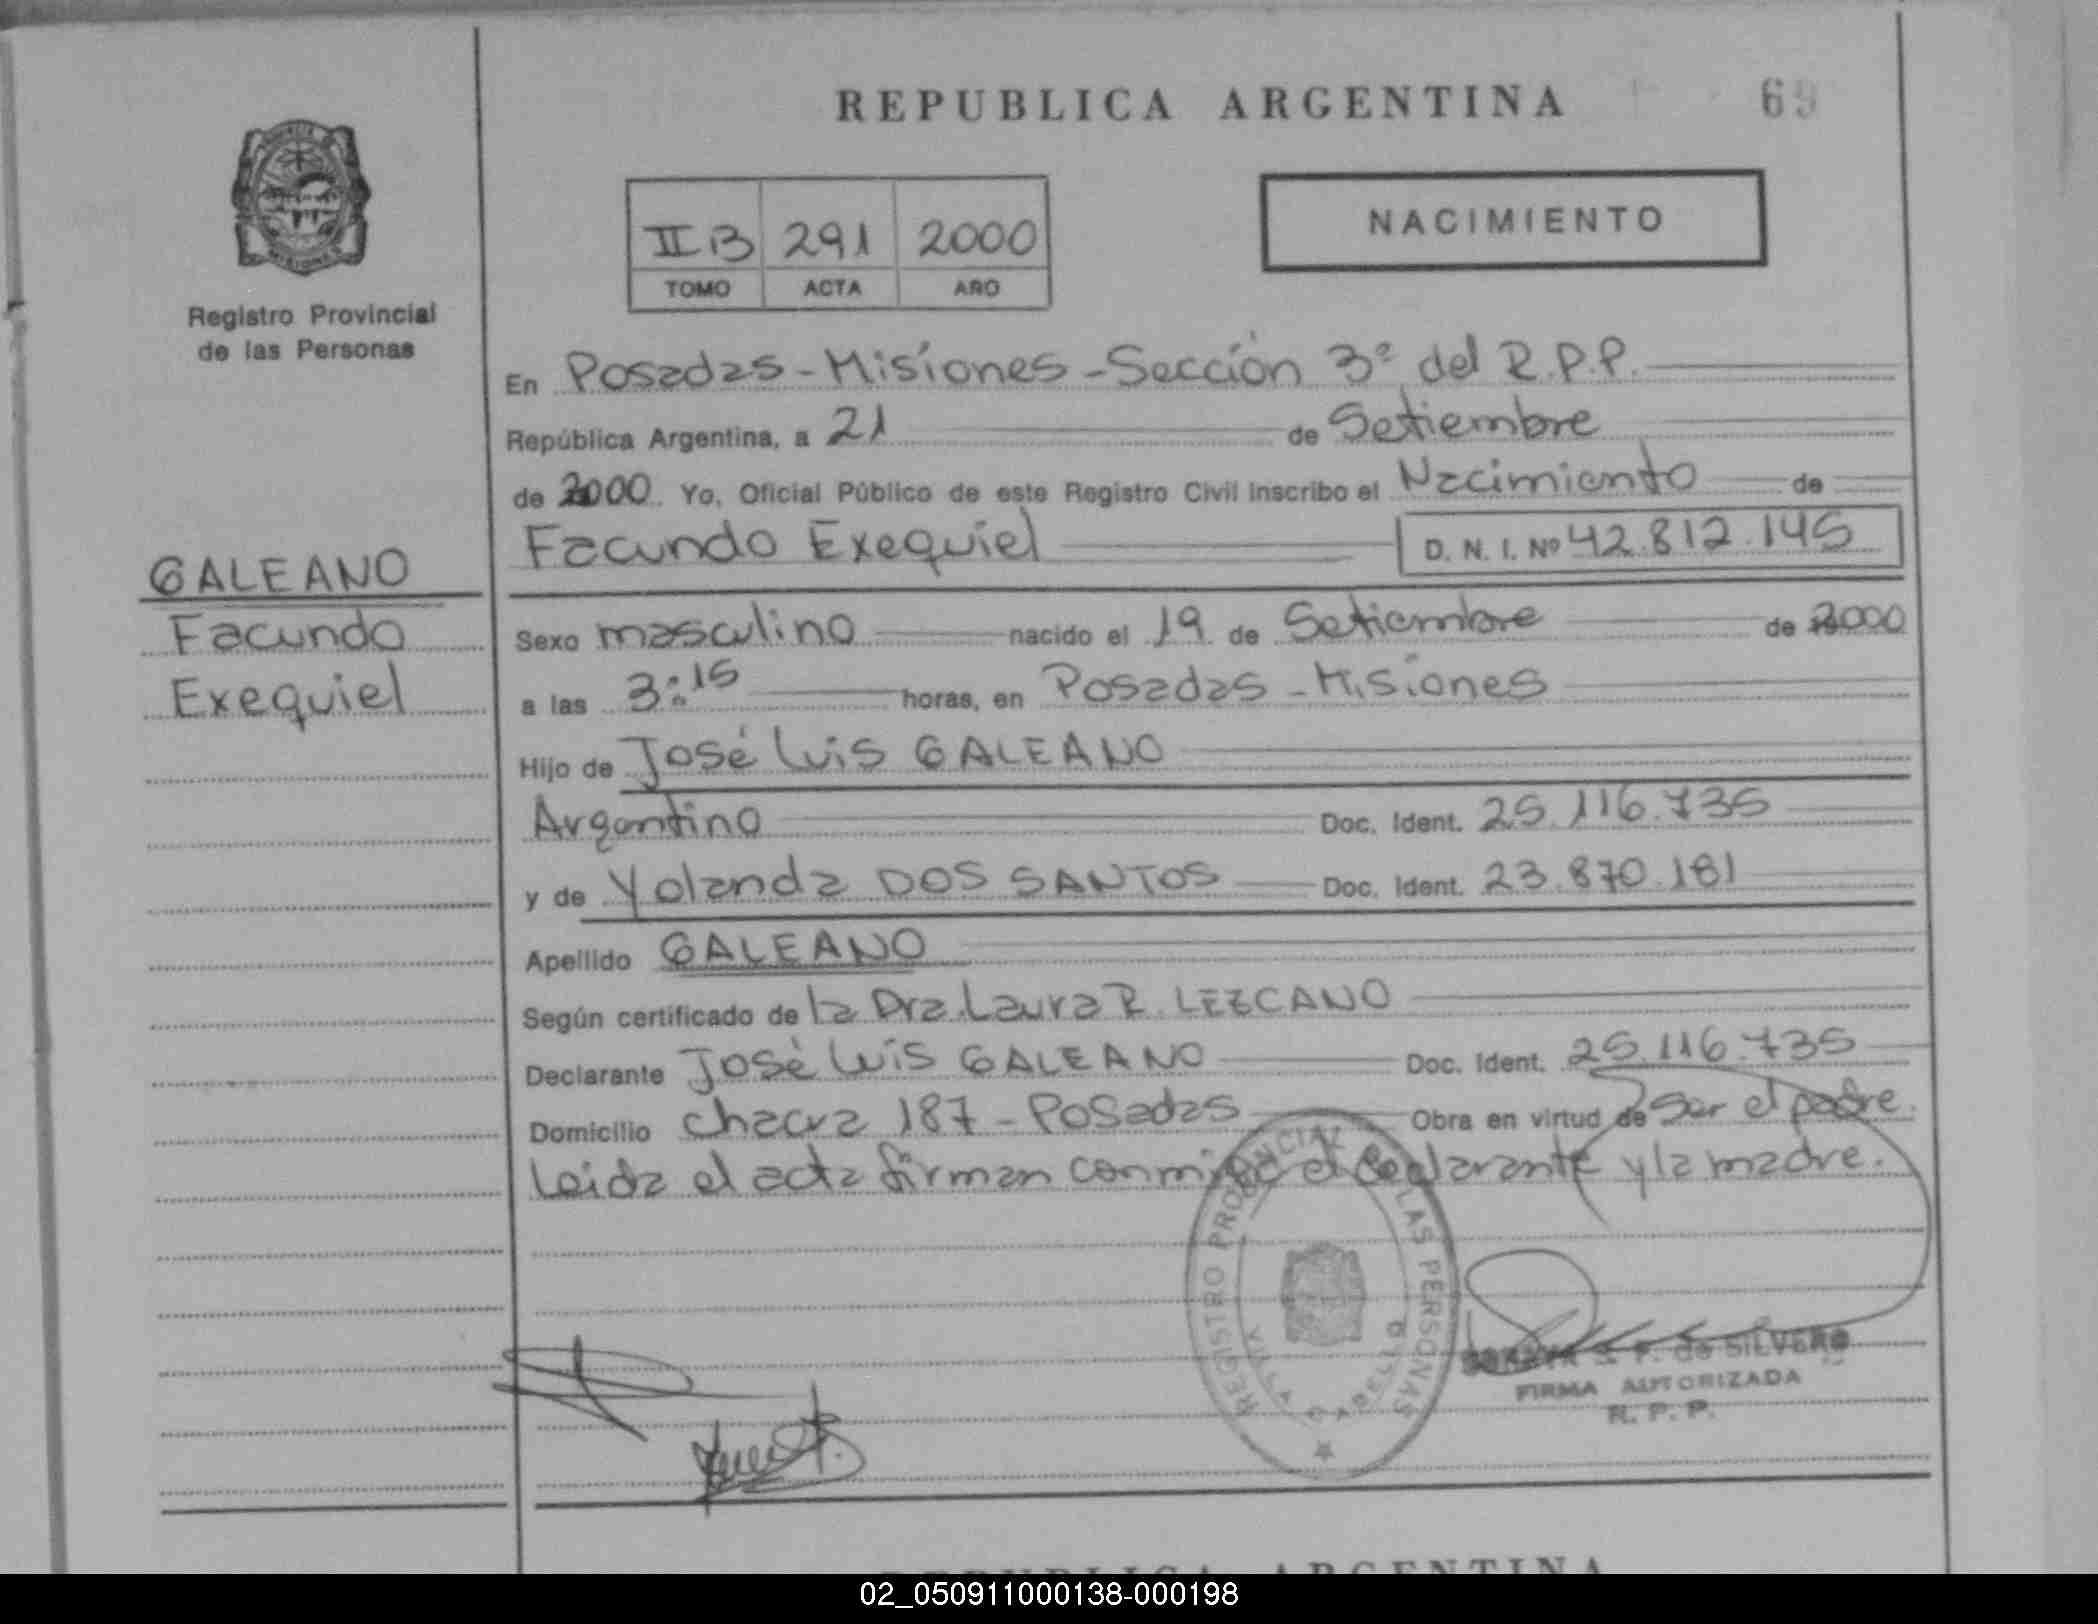 REPUBLICA ARGENTINA 69
II B 291 2000
TOMO ACTA AÑO
NACIMIENTO
Registro Provincial
de las Personas
En Posadas - Misiones - Sección 3ª del R.P.P.
República Argentina, a 21 de Setiembre
de 2000 Yo, Oficial Público de este Registro Civil inscribo el Nacimiento de
Facundo Exequiel D. N. I. Nº 42.812.145
GALEANO
Facundo
Exequiel
Sexo masculino nacido el 19 de Setiembre de 2000
a las 3:15 horas, en Posadas - Misiones
Hijo de José Luis GALEANO
Argentino Doc. Ident. 25.116.735
y de Yolanda DOS SANTOS Doc. Ident. 23.870.181
Apellido GALEANO
Según certificado de la Dra. Laura R. LEZCANO
Declarante José Luis GALEANO Doc. Ident. 25.116.735
Domicilio Chacra 187 - Posadas Obra en virtud de Ser el padre.
Leida el acta firman conmigo el declarante y la madre.
REGISTRO PROVINCIAL DE LAS PERSONAS
VILLA CABELLO
S. F. de SILVERO
FIRMA AUTORIZADA
R. P. P.
REPUBLICA ARGENTINA
02_050911000138-000198